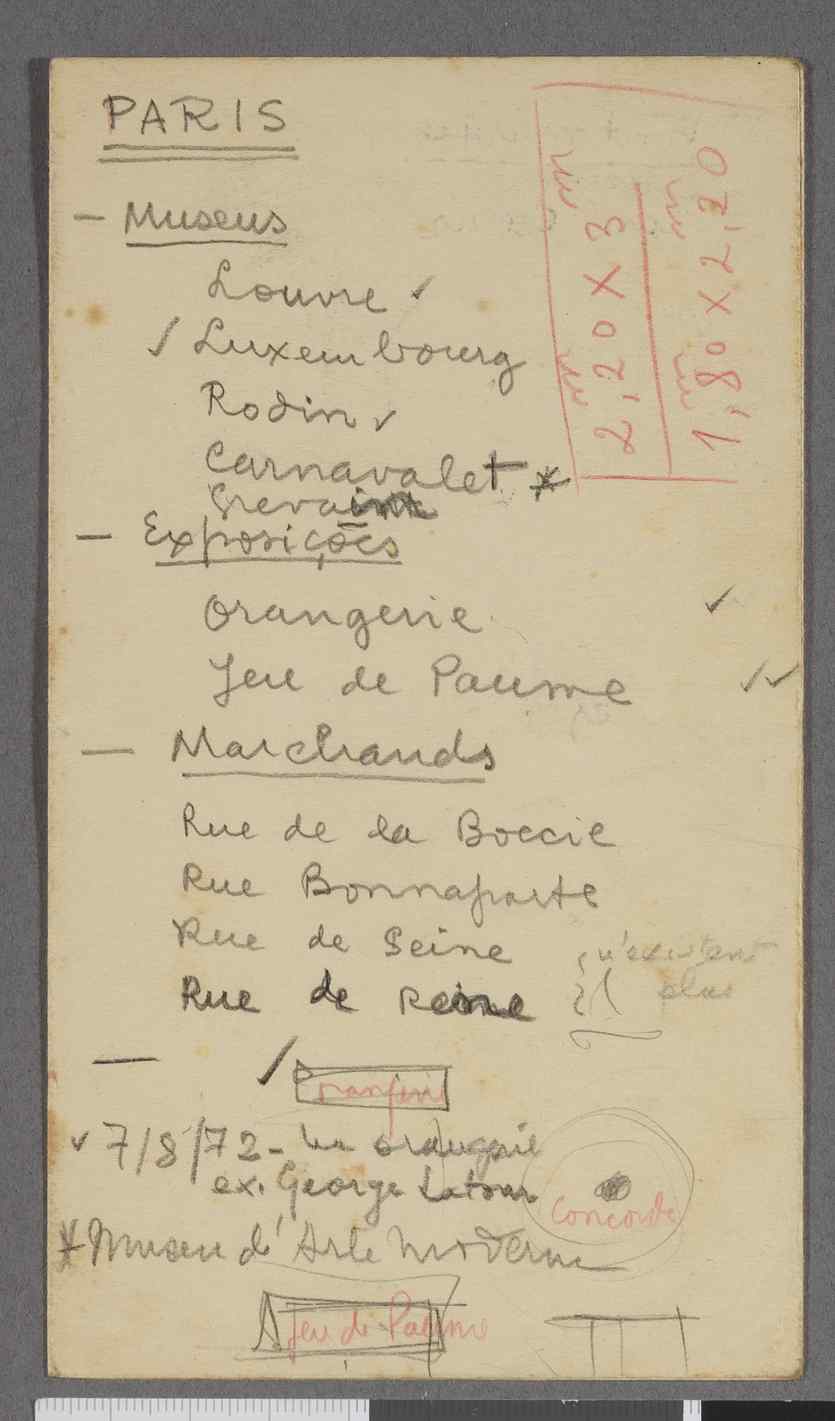 PARIS
— Museus
Louvre ✓
✓ Luxembourg
Rodin ✓
Carnavalet *
— Exposições
Orangerie ✓
Jeu de Paume ✓✓
— Marchands
Rue de la Boecie
Rue Bonnaparte
Rue de Seine
Rue de Reine
n'existent
plus
— ✓
✓ 7/8/72 - orangerie
ex. George Latour
Concorde
* Museu d'Arte Moderne
Jeu de Paume
2,20 x 3
1,80 x 2,20